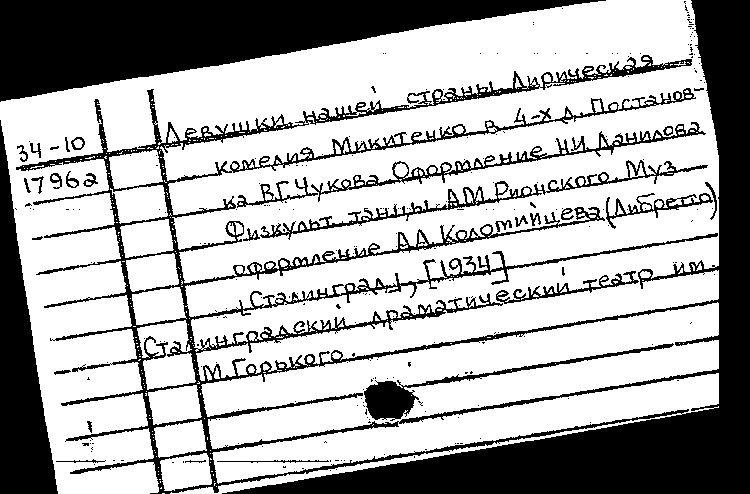 34-10
17962
Девушки нашей страны Лирическая
комедия Микитенко в 4-х д. Постанов-
ка В.Г.Чукова Оформление Н.И.Данилова
Физкульт.танцы А.М.Рионского. Муз.
оформление А.А.Коломийцева (Либретто)
[Сталинград], [1934]
Сталинградский драматический театр им.
М.Горького.